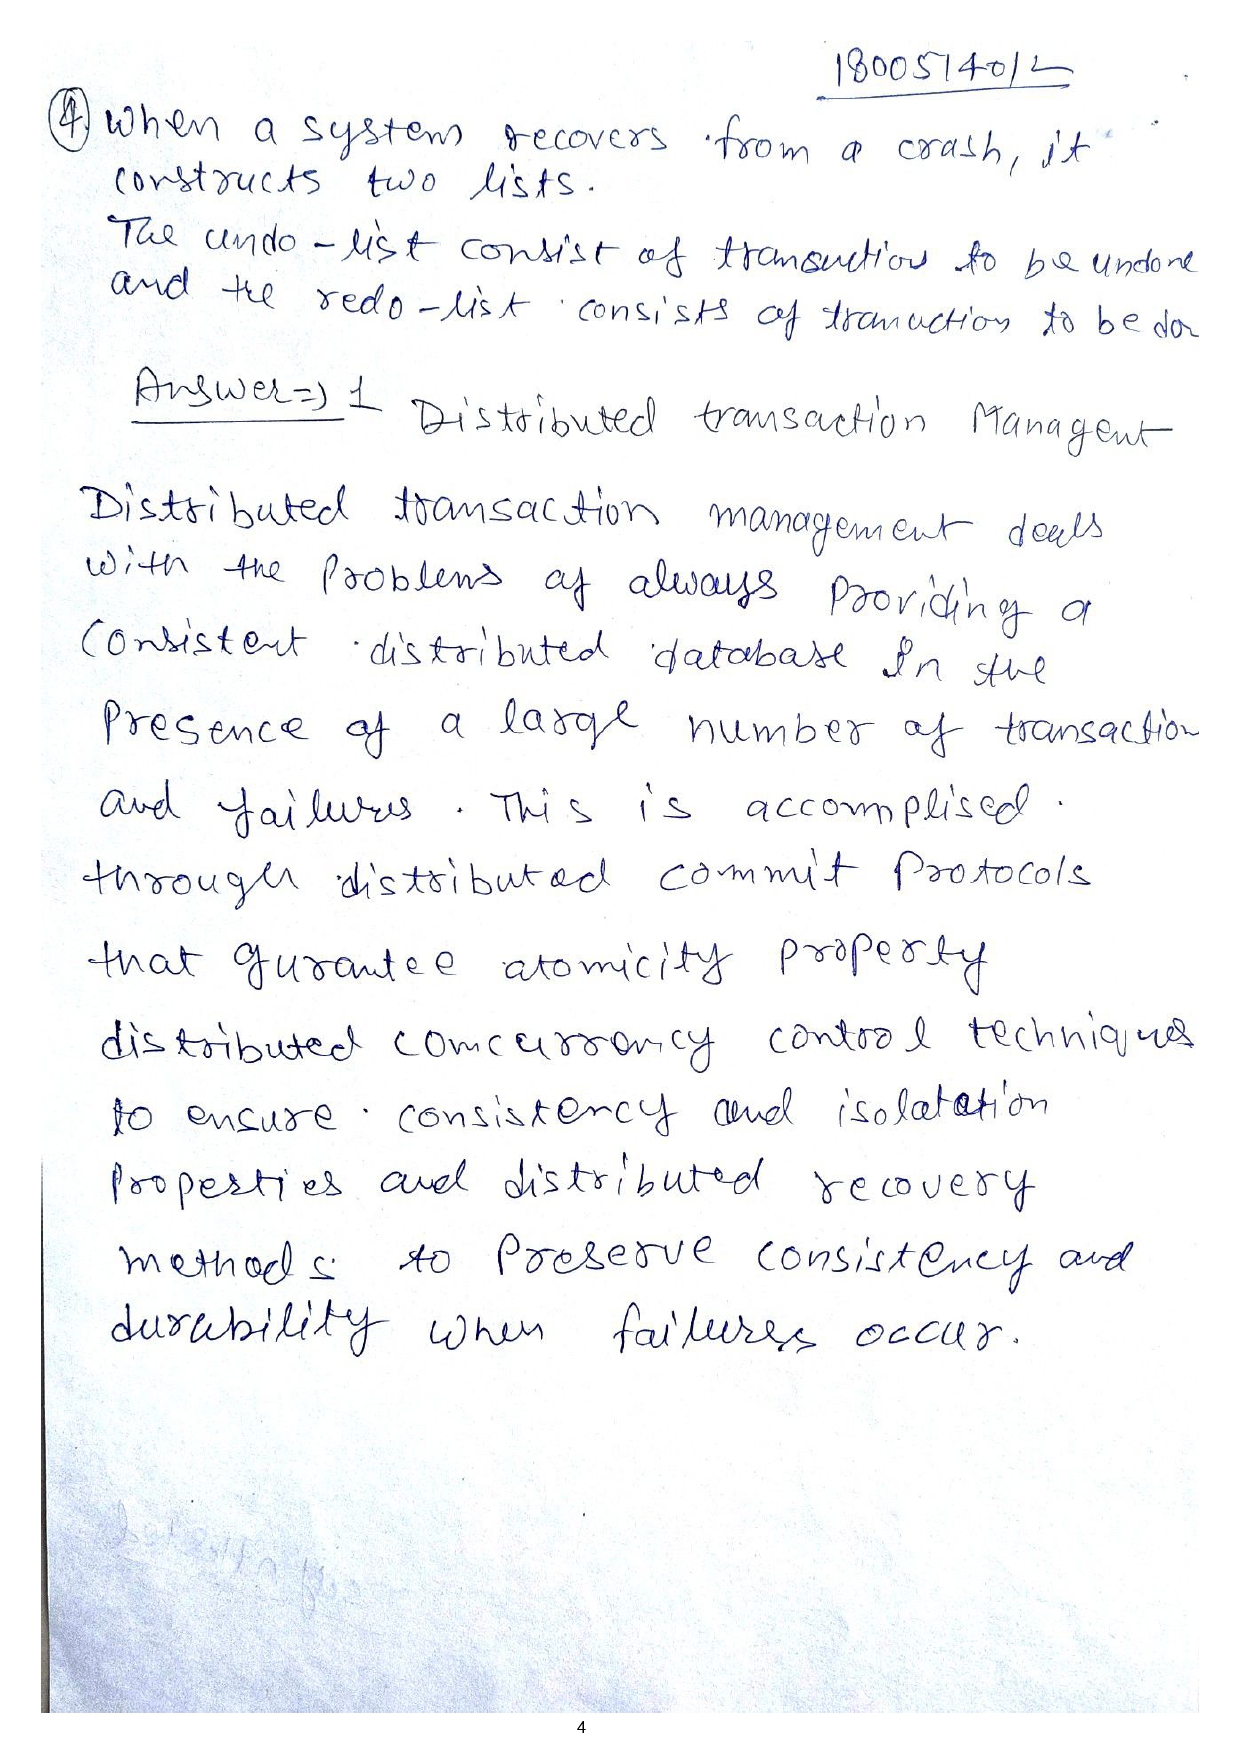 180051401L
4. When a system recovers from a crash, it
constructs two lists.
The undo-list consist of transuction to be undone
and the redo-list consists of tranuction to be don
Answer=>1 Distributed transaction Managent
Distributed transaction management deals
with the Problems of always Providing a
Consistent distributed database In the
Presence of a large number of transaction
and failures. This is accomplised.
through distributed commit Protocols
that gurantee atomicity property
distributed comcurrency control techniques
to ensure consistency and isolatation
Properties and distributed recovery
methods to Preserve consistency and
durability when failures occur.
4